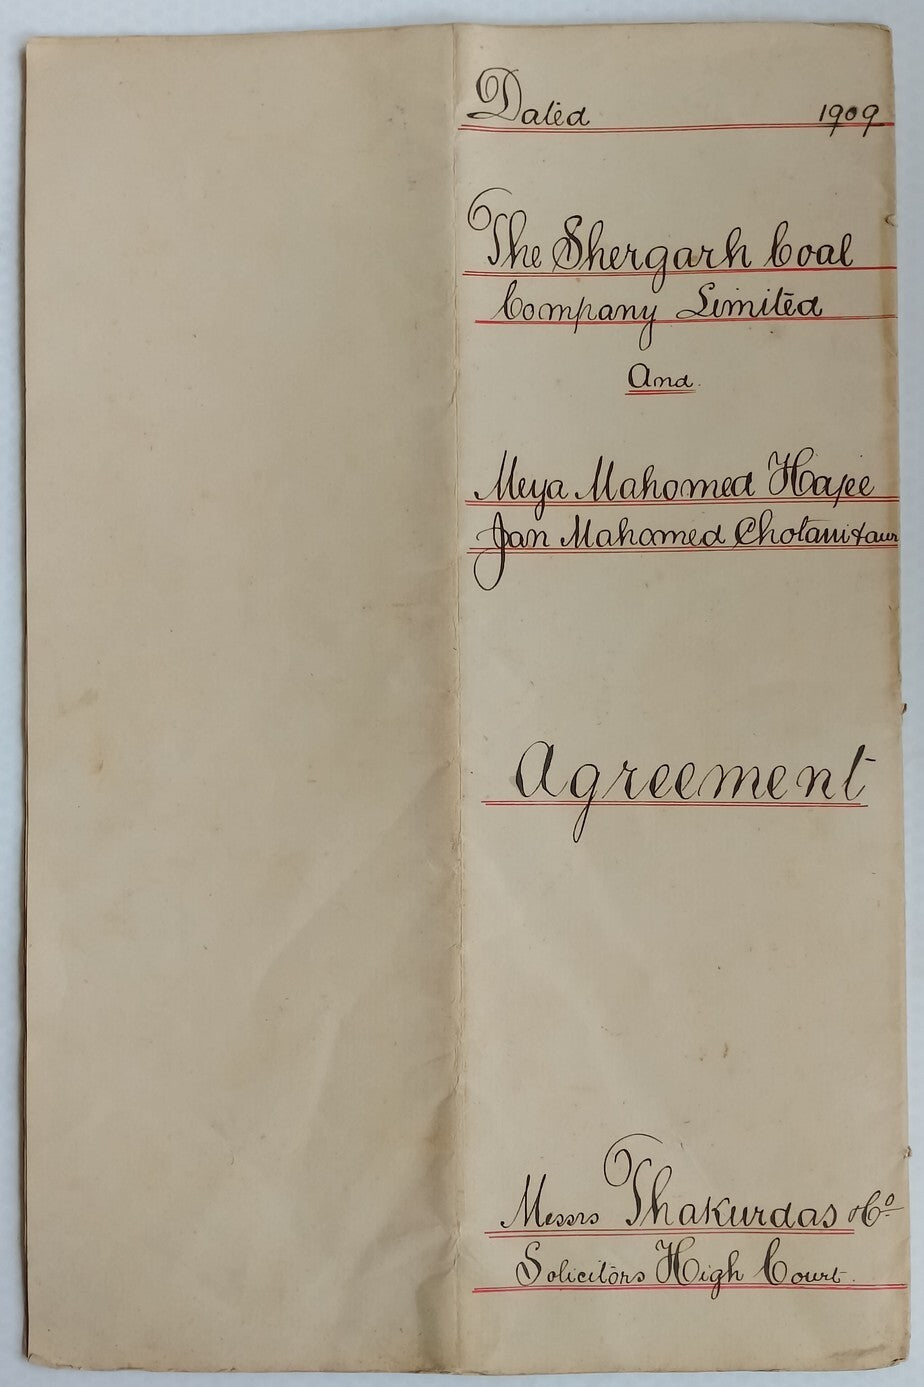 Dated 1909
The Shergarh Coal
Company Limited
And
Meya Mahomed Hajee
Jan Mahomed Chotani & anr
Agreement
Messrs Thakurdas & Co
Solicitors High Court.